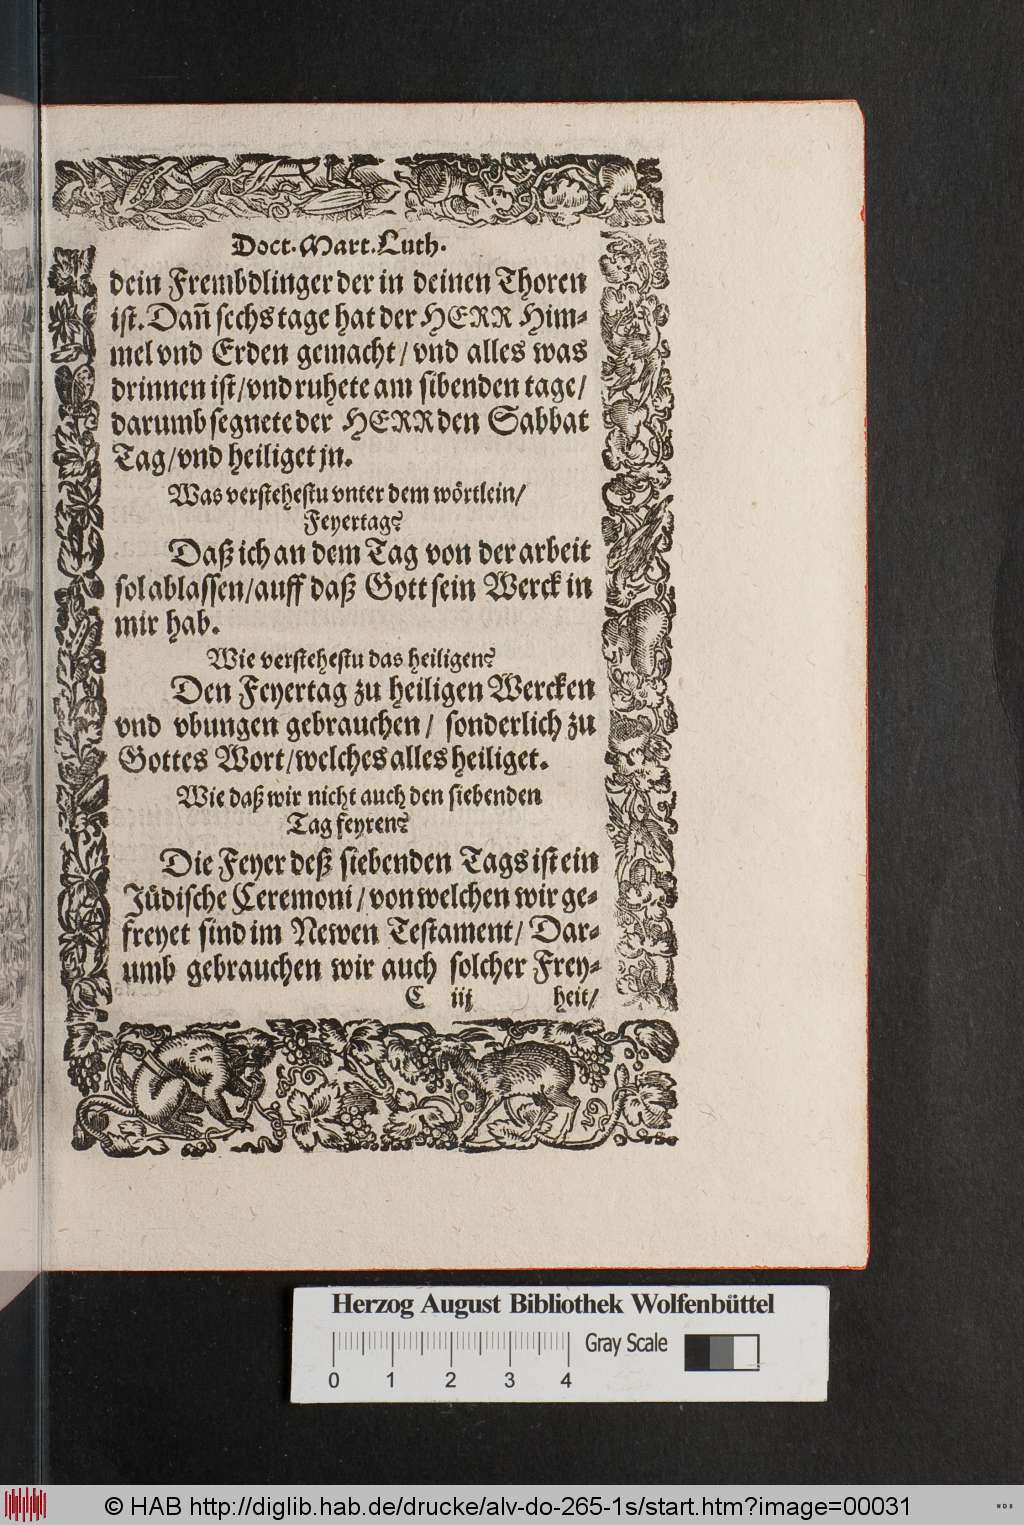 Doct. Mart. Luth.
dein Frembdlinger der in deinen Thoren
ist. Dañ sechs tage hat der HERR Him-
mel vnd Erden gemacht / vnd alles was
drinnen ist / vnd ruhete am sibenden tage /
darumb segnete der HERR den Sabbat
Tag / vnd heiliget jn.
Was verstehestu vnter dem wörtlein /
Feyertag?
Daß ich an dem Tag von der arbeit
sol ablassen / auff daß Gott sein Werck in
mir hab.
Wie verstehestu das heiligen?
Den Feyertag zu heiligen Wercken
vnd vbungen gebrauchen / sonderlich zu
Gottes Wort / welches alles heiliget.
Wie daß wir nicht auch den siebenden
Tag feyren?
Die Feyer deß siebenden Tags ist ein
Jüdische Ceremoni / von welchen wir ge-
freyet sind im Newen Testament / Dar-
umb gebrauchen wir auch solcher Frey-
C iij heit /
Herzog August Bibliothek Wolfenbüttel
Gray Scale
0 1 2 3 4
© HAB http://diglib.hab.de/drucke/alv-do-265-1s/start.htm?image=00031